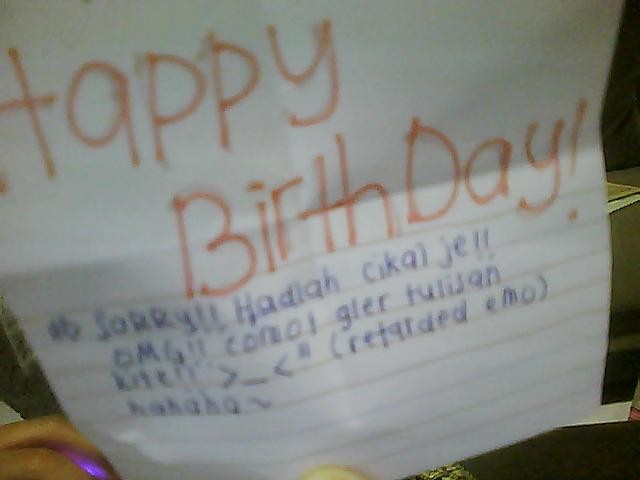 Happy
BirthDay!
SORRY!! Hadiah cikai je!!
OMG!! comot gler tulisan
kite!! >_<" (retarded emo)
hahaha~